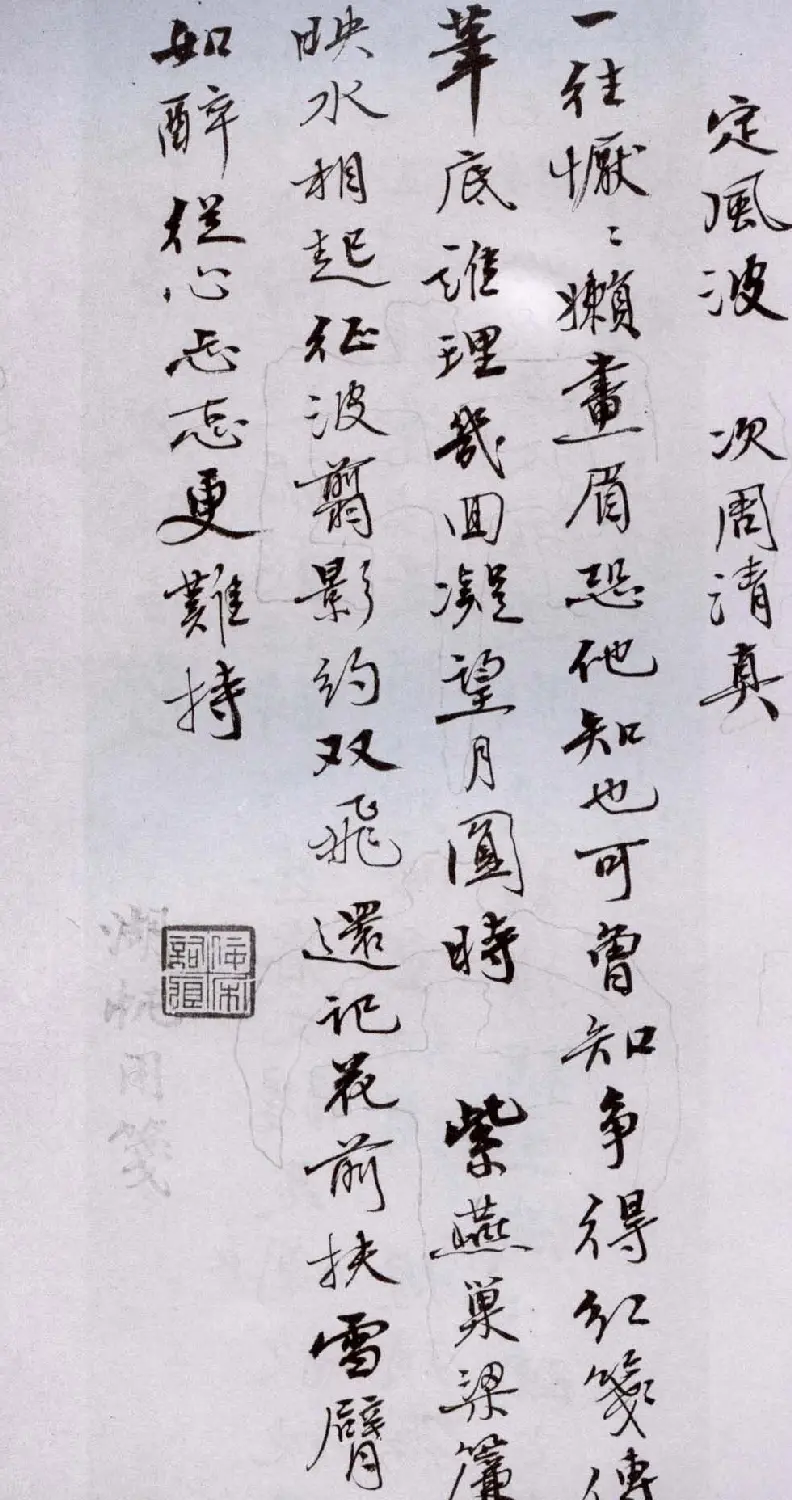 定風波 次周清真
一往懨〻懶畫眉恐他知也可曾知争得紅箋傳
筆底誰理幾回凝望月圓時 紫燕巢梁簾
映水相起征波翦影約双飛還記花前扶雪臂
如醉從心忘忘更難持
湖帆用箋